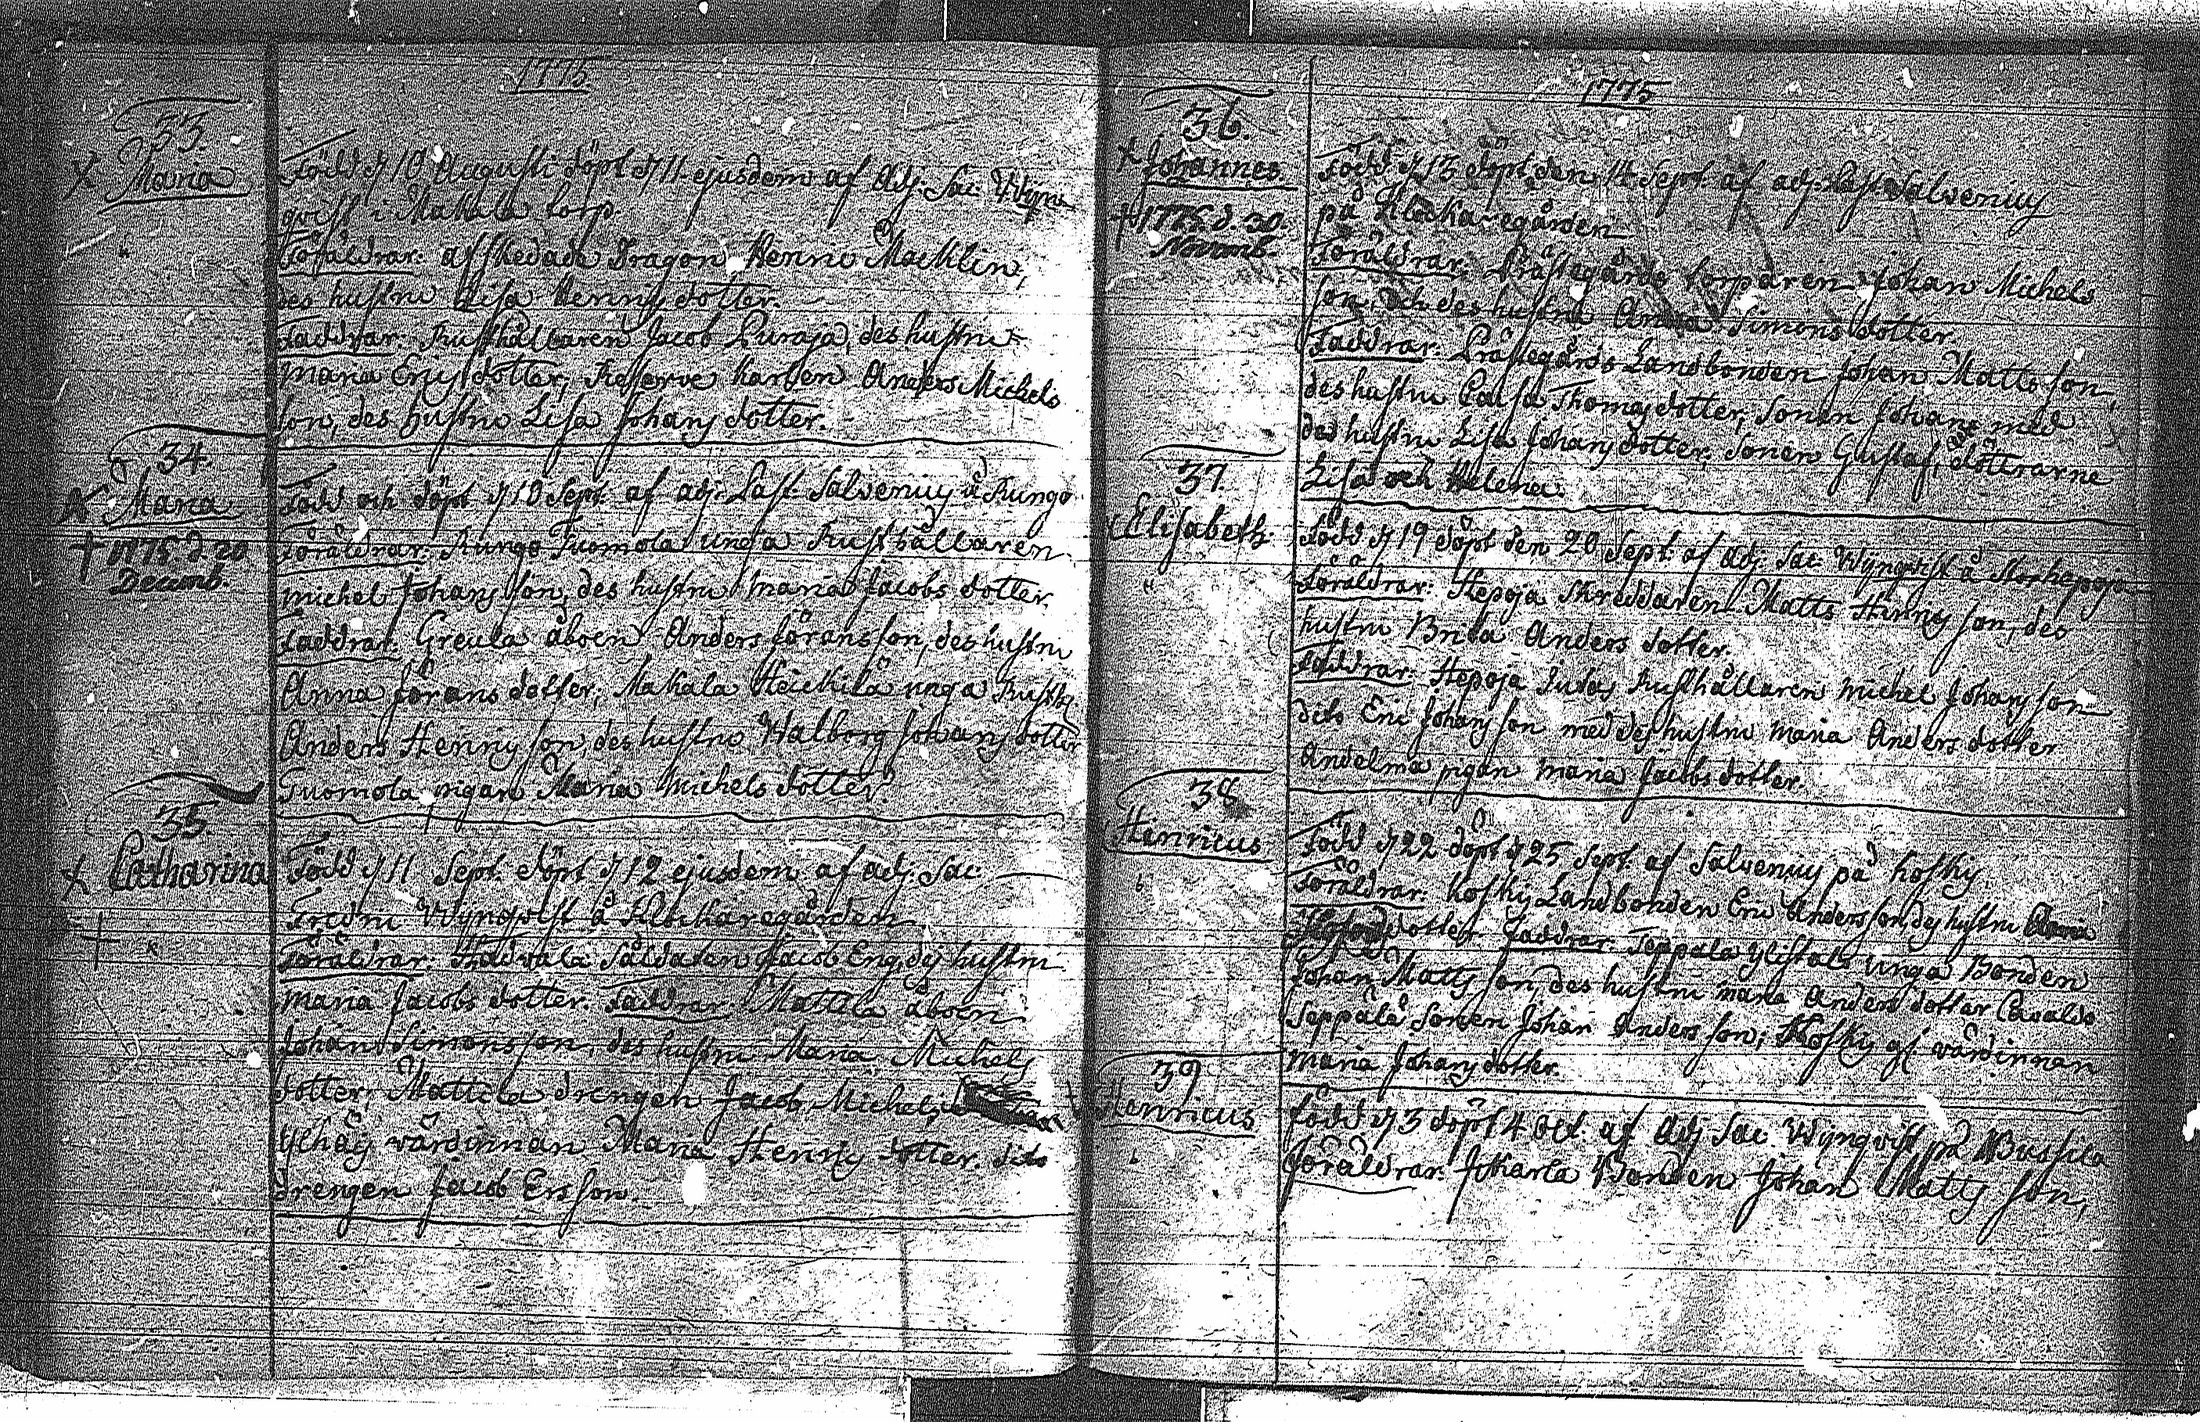 1775
33.
Maria
Född d 10 Augusti döpt d 11 ejusdem af Adj. Sac. Wijn
qvist i Makala torp
Föräldrar: afskedade Dragon Henric Macklin,
des hustru Lisa Henrics dotter.
Faddrar: Rusthållaren Jacob Puraja, des hustru
Maria Erics dotter, Reserve karlen Anders Michels
son, des hustru Lisa Johans dotter.
34.
Maria
† 1775. d. 20
Decemb.
Född och döpt d 10 Sept. af adj. Past. Salvenius å Rungo
Föräldrar: Rungo Tuomola unga Rusthållaren
Michel Johans son, des hustru Maria Jacobs dotter.
Faddrar: Greula åboen Anders Görans son, des hustru
Anna Görans dotter; Makala Heickilä unga Rusth.
Anders Henrics son des hustru Walborg Johans dotter
Tuomola pigan Maria Michels dotter.
35.
Catharina
†
Född d 11 Sept. döpt d 12 ejusdem af adj: Sac:
Fredric Wijnqvist å Klockaregården
Föräldrar: Soldaten Jacob Eng, des hustru
Maria Jacobs dotter. Faddrar: Mattila åboen
Johan Simons son, des hustru Maria Michels
dotter; Mattila drengen Jacob Michels
värdinnan Maria Henrics dotter. dito
drengen Jacob Ersson.
1775
36.
Johannes
† 1775. d. 30.
Novemb.
Född d 13 döpt den 14 Sept. af adj. Past. Salvenius
på Klockaregården
Föräldrar: Prästegårds torparen Johan Michels
son och des hustru Anna Simons dotter.
Faddrar: Prästegårds Landbonden Johan Matts son,
des hustru Caisa Thomas dotter, Sonen Johan med
des hustru Lisa Johans dotter; Sonen Gustaf, döttrarne
Lisa och Helena.
37.
Elisabeth.
Född d 19 döpt den 20 Sept. af Adj. Sac. Wijnqvist å Storhepoja
Föräldrar: Hepoja Skreddaren Matts Henrics son, des
hustru Brita Anders dotter.
Faddrar: Hepoja Rusthållaren Michel Johans son
dito Eric Johans son med des hustru Maria Anders dotter
Andelma pigan Maria Jacobs dotter.
38
Henricus
Född d 22 döpt d 25 Sept. af Salvenius på Koski.
Föräldrar: Koski Landbonden Eric Anders son, des hustru Maria
dotter. Faddrar: Seppälä Ylistalo unga Bonden
Johan Matts son, des hustru Maria Anders dotter
Seppälä Sonen Johan Anders son; Koski gl. värdinnan
Maria Johans dotter.
39
Henricus
född d 3 döpt 4 Oct. af Adj. Sac Wijnqvist på Bussila
Föräldrar: Jokarla Bonden Johan Matts son,